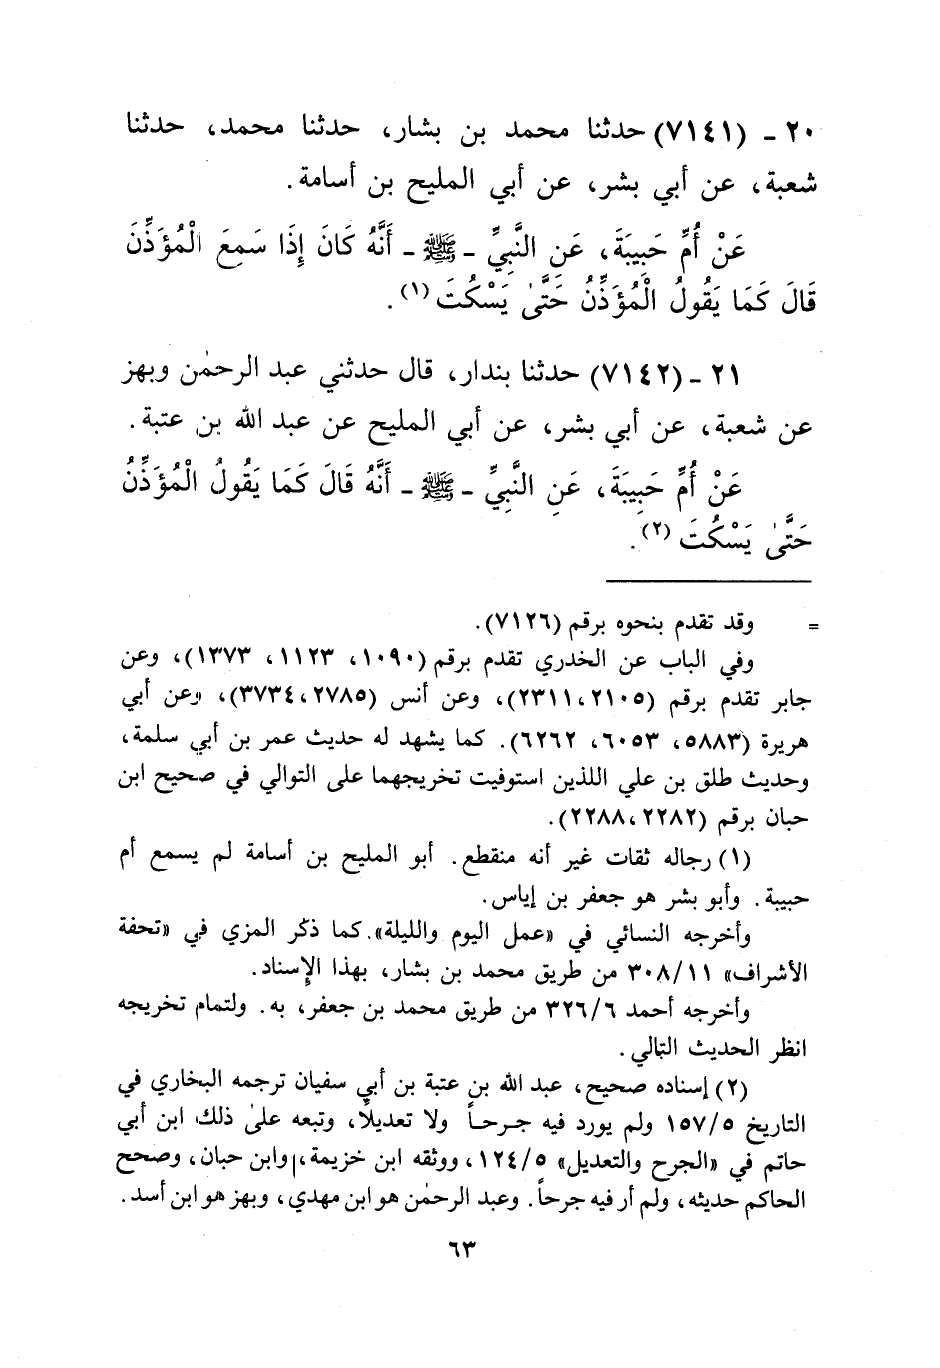 ٢٠ ـ (٧١٤١) حدثنا محمد بن بشار، حدثنا محمد، حدثنا
شعبة، عن أبي بشر، عن أبي المليح بن أسامة.
عَنْ أُمِّ حَبِيبَةَ، عَنِ النَّبِيِّ ـ ﷺ ـ أَنَّهُ كَانَ إِذَا سَمِعَ الْمُؤَذِّنَ
قَالَ كَمَا يَقُولُ الْمُؤَذِّنُ حَتَّىٰ يَسْكُتَ (١).
٢١ ـ (٧١٤٢) حدثنا بندار، قال حدثني عبد الرحمٰن وبهز
عن شعبة، عن أبي بشر، عن أبي المليح عن عبد الله بن عتبة.
عَنْ أُمِّ حَبِيبَةَ، عَنِ النَّبِيِّ ـ ﷺ ـ أَنَّهُ قَالَ كَمَا يَقُولُ الْمُؤَذِّنُ
حَتَّىٰ يَسْكُتَ (٢).
= وقد تقدم بنحوه برقم (٧١٢٦).
وفي الباب عن الخدري تقدم برقم (١٠٩٠، ١١٢٣، ١٣٧٣)، وعن
جابر تقدم برقم (٢١٠٥، ٢٣١١)، وعن أنس (٢٧٨٥، ٣٧٣٤)، وعن أبي
هريرة (٥٨٨٣، ٦٠٥٣، ٦٢٦٢). كما يشهد له حديث عمر بن أبي سلمة،
وحديث طلق بن علي اللذين استوفيت تخريجهما على التوالي في صحيح ابن
حبان برقم (٢٢٨٢، ٢٢٨٨).
(١) رجاله ثقات غير أنه منقطع. أبو المليح بن أسامة لم يسمع أم
حبيبة. وأبو بشر هو جعفر بن إياس.
وأخرجه النسائي في «عمل اليوم والليلة». كما ذكر المزي في «تحفة
الأشراف» ٣٠٨/١١ من طريق محمد بن بشار، بهذا الإسناد.
وأخرجه أحمد ٣٢٦/٦ من طريق محمد بن جعفر، به. ولتمام تخريجه
انظر الحديث التالي.
(٢) إسناده صحيح، عبد الله بن عتبة بن أبي سفيان ترجمه البخاري في
التاريخ ١٥٧/٥ ولم يورد فيه جرحاً ولا تعديلاً، وتبعه علىٰ ذلك ابن أبي
حاتم في «الجرح والتعديل» ١٢٤/٥، ووثقه ابن خزيمة، وابن حبان، وصحح
الحاكم حديثه، ولم أر فيه جرحاً. وعبد الرحمٰن هو ابن مهدي، وبهز هو ابن أسد.
٦٣